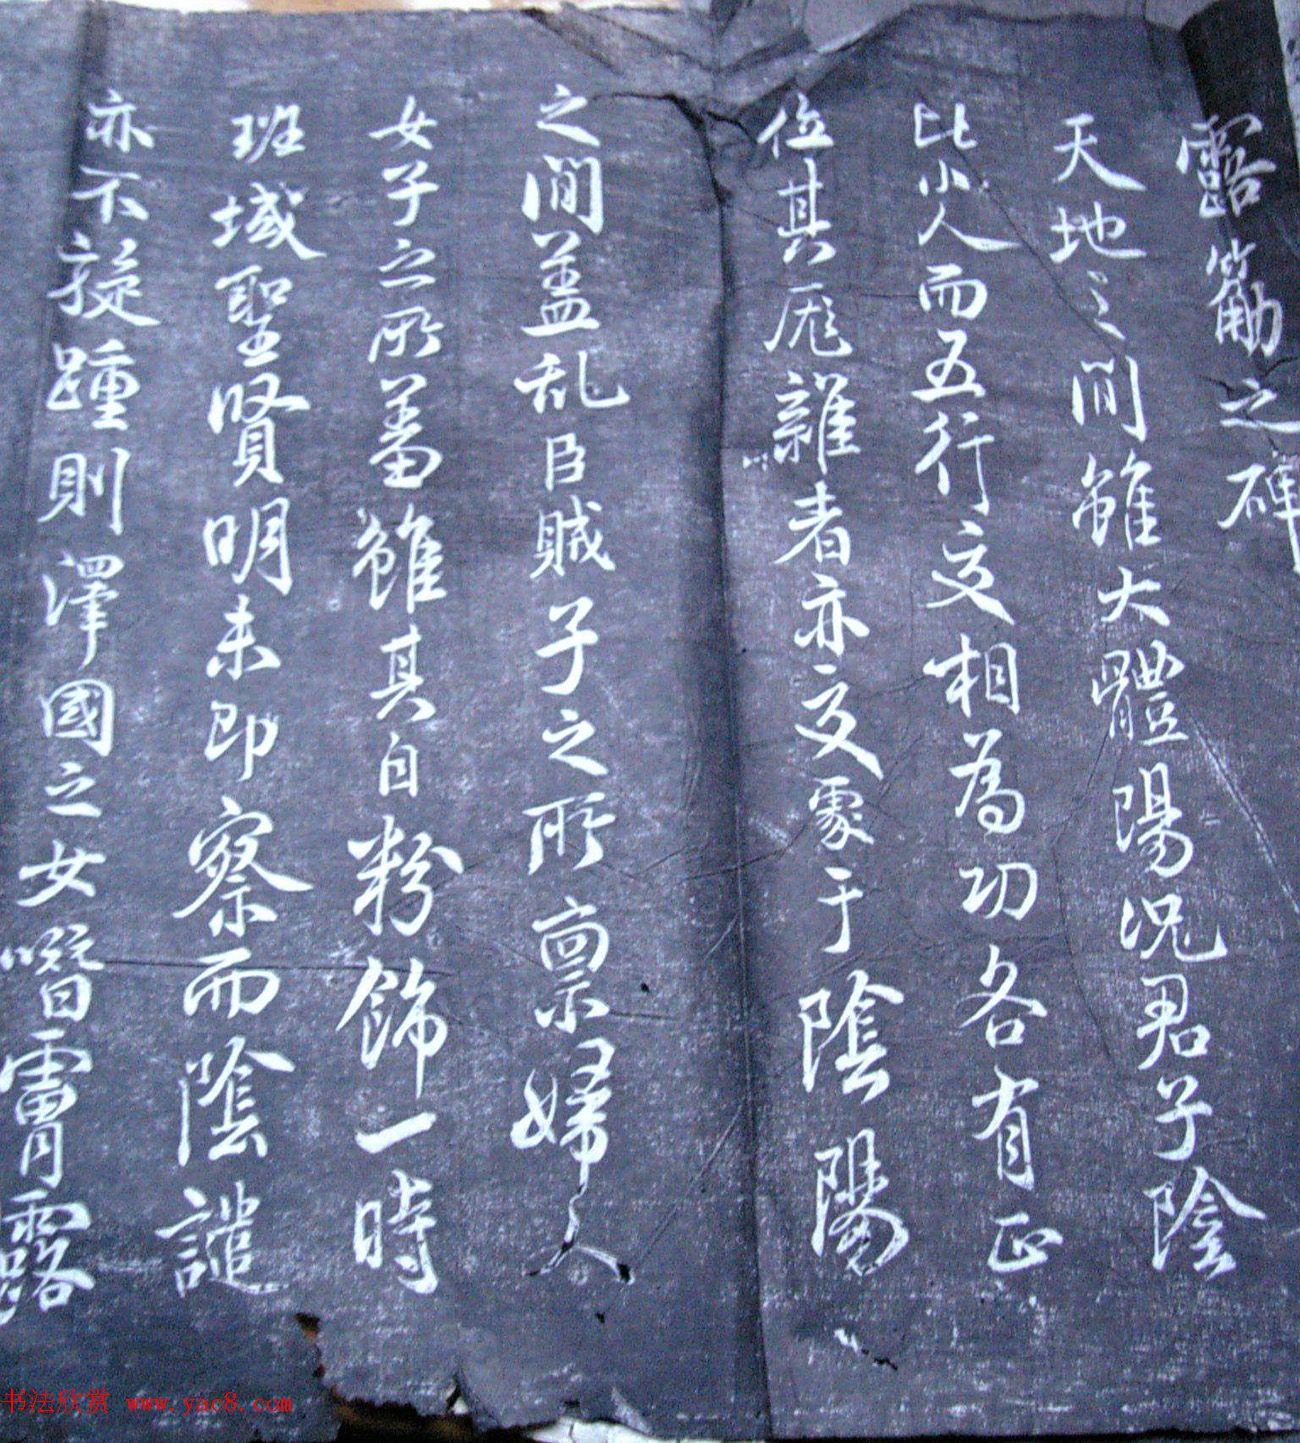 露筋之碑
天地之間雖大體陽況君子陰
比小人而五行交相為功各有正
位其厖雜者亦交處于陰陽
之間蓋乱臣賊子之所禀婦人
女子之所羞雖其自粉飾一時
班域聖賢明未即察而陰譴
亦不旋踵則澤國之女噆膚露
书法欣赏 www.yac8.com